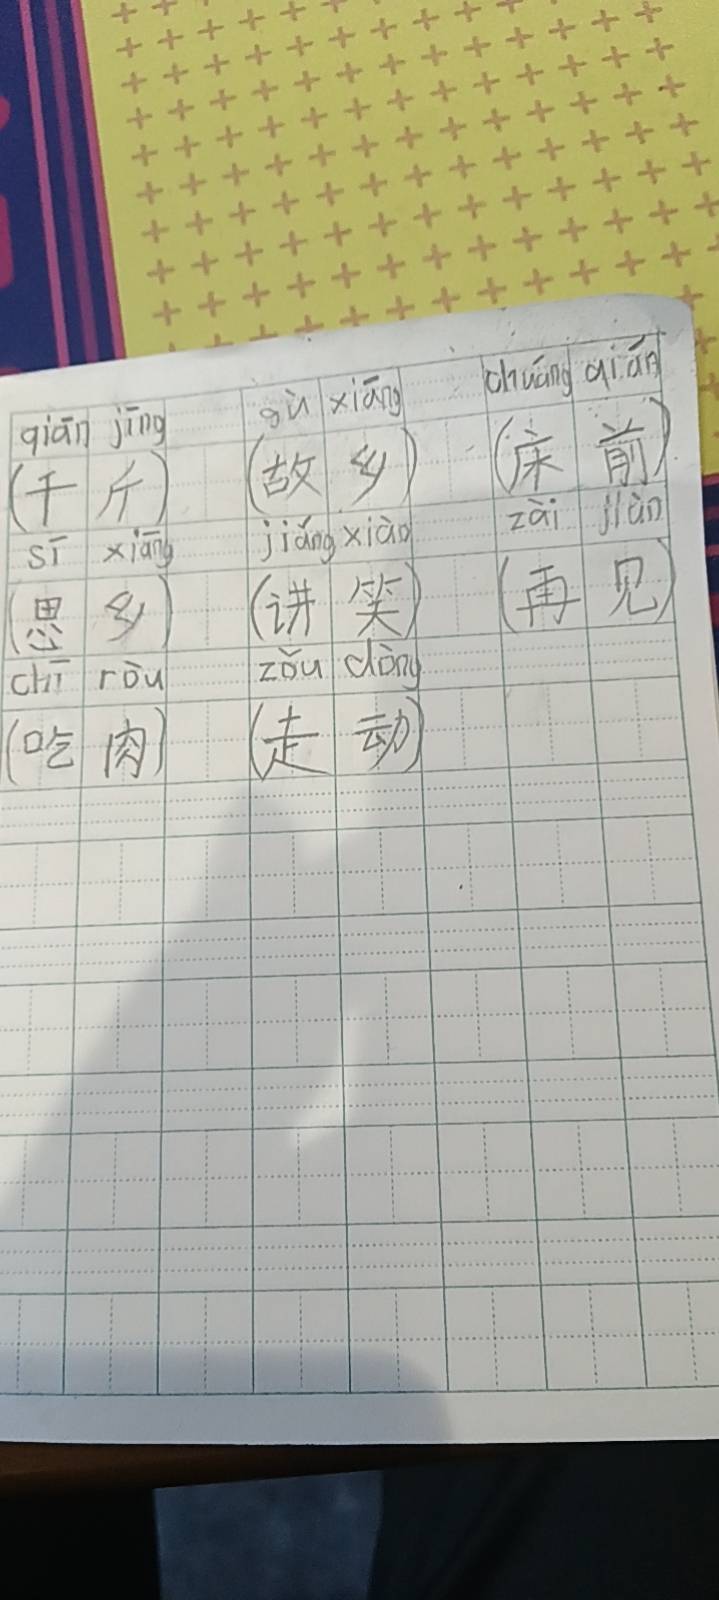 qiān jīng gù xiāng chuáng qián
(千斤) (故乡) (床前)
sī xiāng jiǎng xiào zài jiàn
(思乡) (讲笑) (再见)
chī ròu zǒu dòng
(吃肉) (走动)